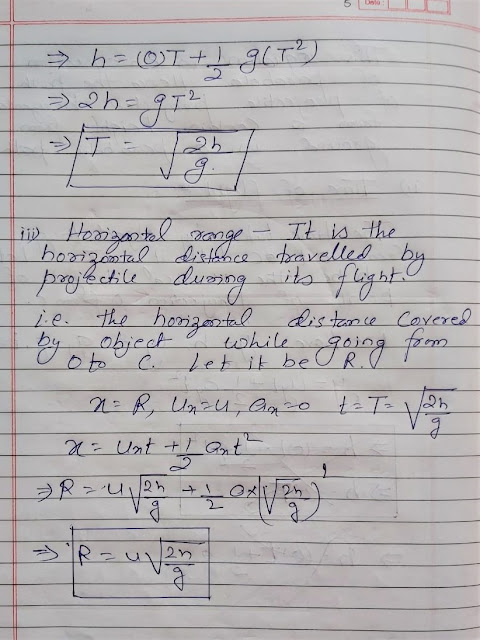 5 Date
⇒ h = (0)T + 1/2 g(T²)
⇒ 2h = gT²
⇒ T = √(2h/g)
iii) Horizontal range - It is the
horizontal distance travelled by
projectile during its flight.
i.e. the horizontal distance covered
by object while going from
O to C. Let it be R.
x = R, ux = u, ax = 0 t = T = √(2h/g)
x = uxt + 1/2 axt²
⇒ R = u√(2h/g) + 1/2 0x(√(2h/g))²
⇒ R = u√(2h/g)